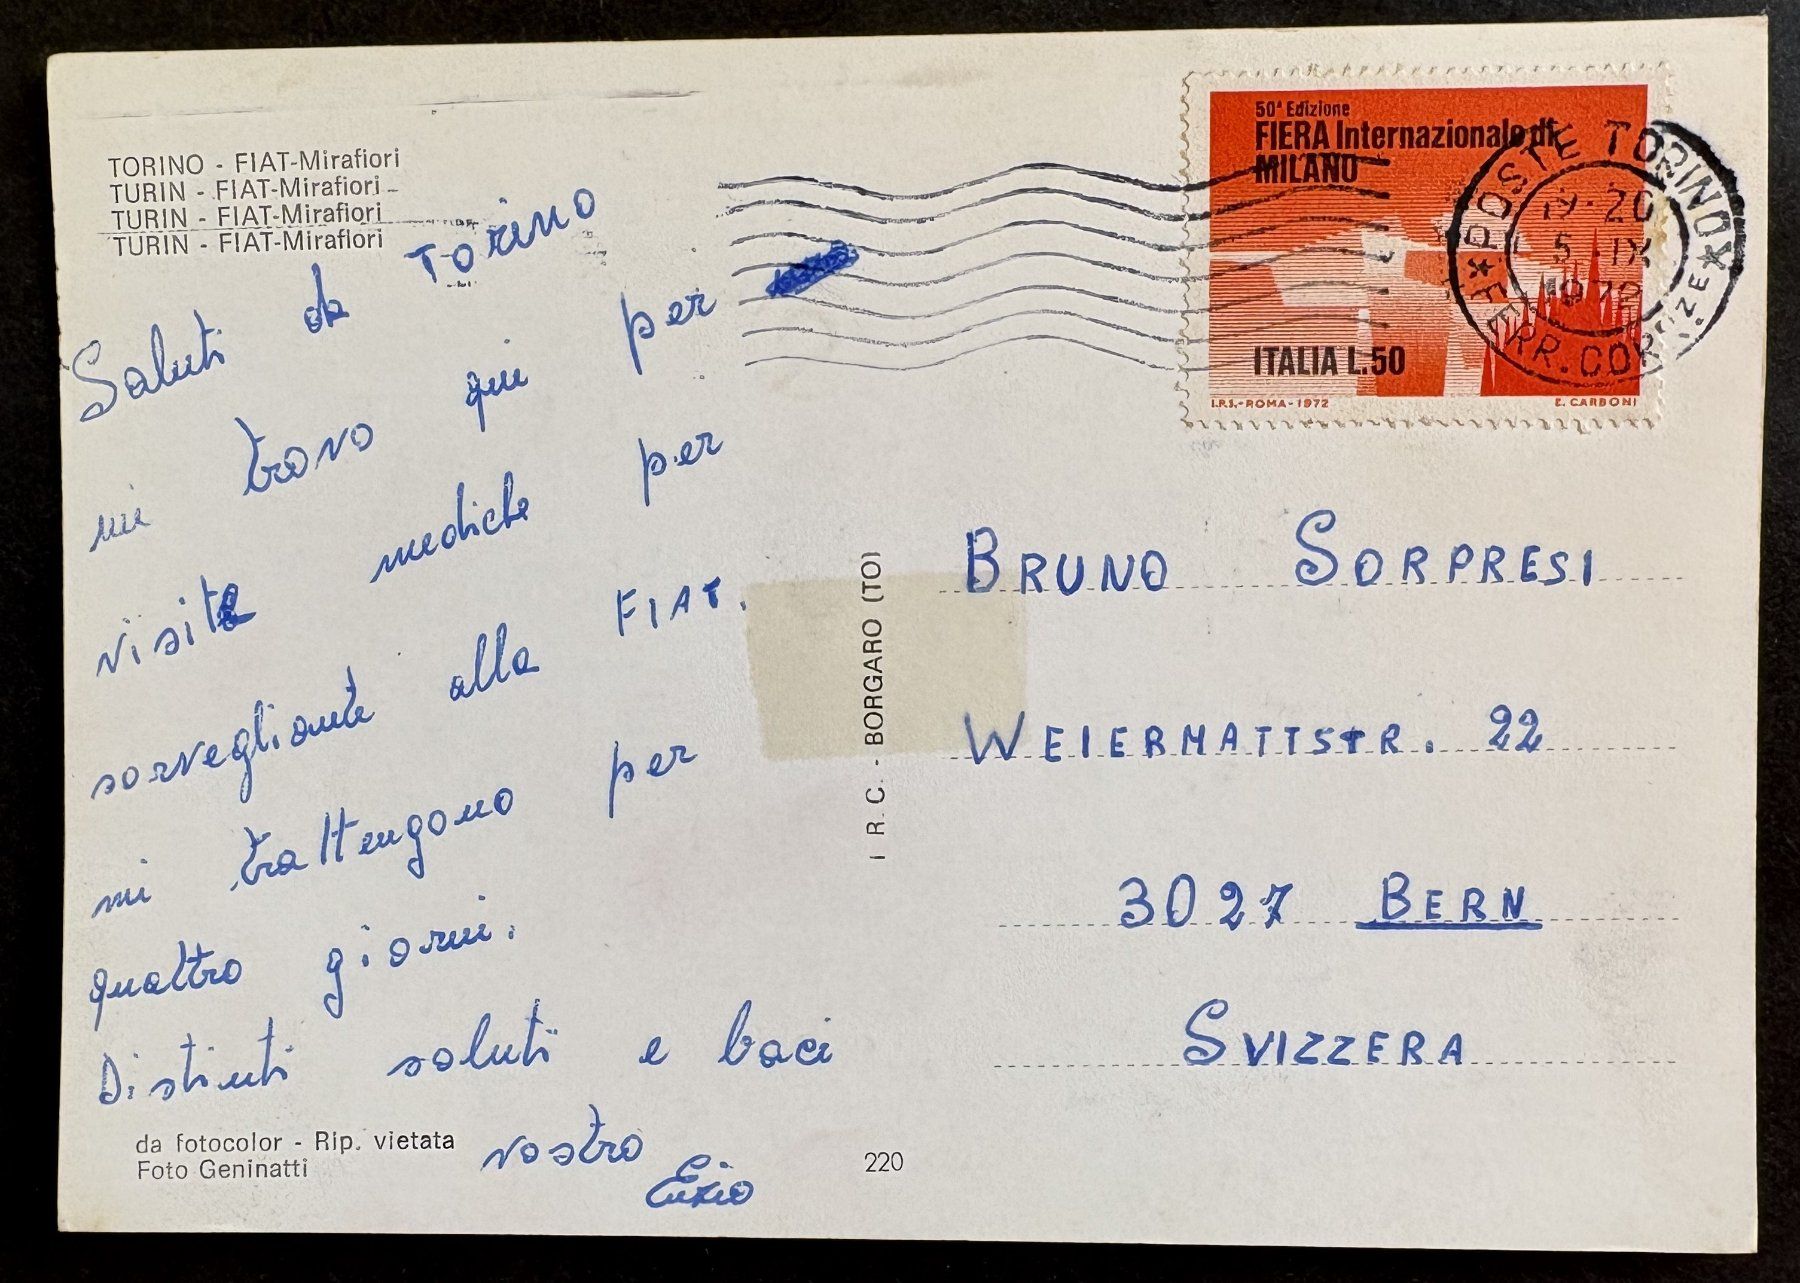 TORINO - FIAT-Mirafiori
TURIN - FIAT-Mirafiori
TURIN - FIAT-Mirafiori
TURIN - FIAT-Mirafiori
Saluti da Torino
mi trovo qui per
visite mediche per
sorvegliante alla FIAT.
mi trattengono per
quattro giorni.
Distinti saluti e baci
vostro
Enzio
da fotocolor - Rip. vietata
Foto Geninatti
220
I.R.C. - BORGARO (TO)
50ª Edizione
FIERA Internazionale di
MILANO
ITALIA L.50
I.P.S.-ROMA-1972
E. CARBONI
POSTE TORINO
19-20
5 IX
1972
FERR. CORRISPZE
BRUNO SORPRESI
WEIERMATTSTR. 22
3027 BERN
SVIZZERA